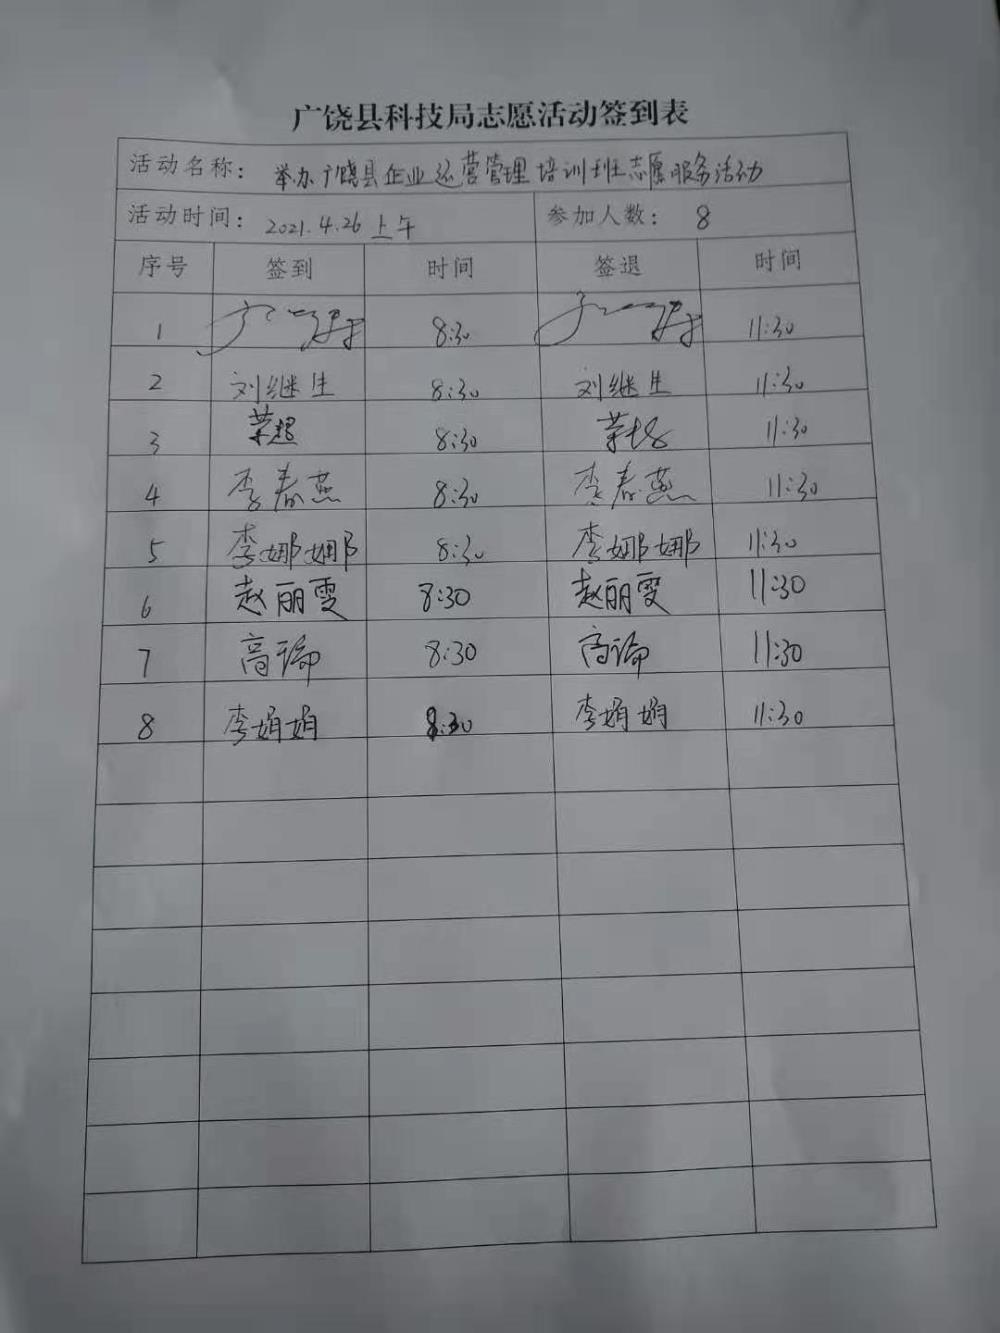 广饶县科技局志愿活动签到表
活动名称: 举办广饶县企业运营管理培训班志愿服务活动
活动时间: 2021.4.26 上午 参加人数: 8
序号 签到 时间 签退 时间
1 8:30 11:30
2 刘继生 8:30 刘继生 11:30
3 荣超 8:30 荣超 11:30
4 李春燕 8:30 李春燕 11:30
5 李娜娜 8:30 李娜娜 11:30
6 赵丽雯 8:30 赵丽雯 11:30
7 高瑜 8:30 高瑜 11:30
8 李娟娟 8:30 李娟娟 11:30